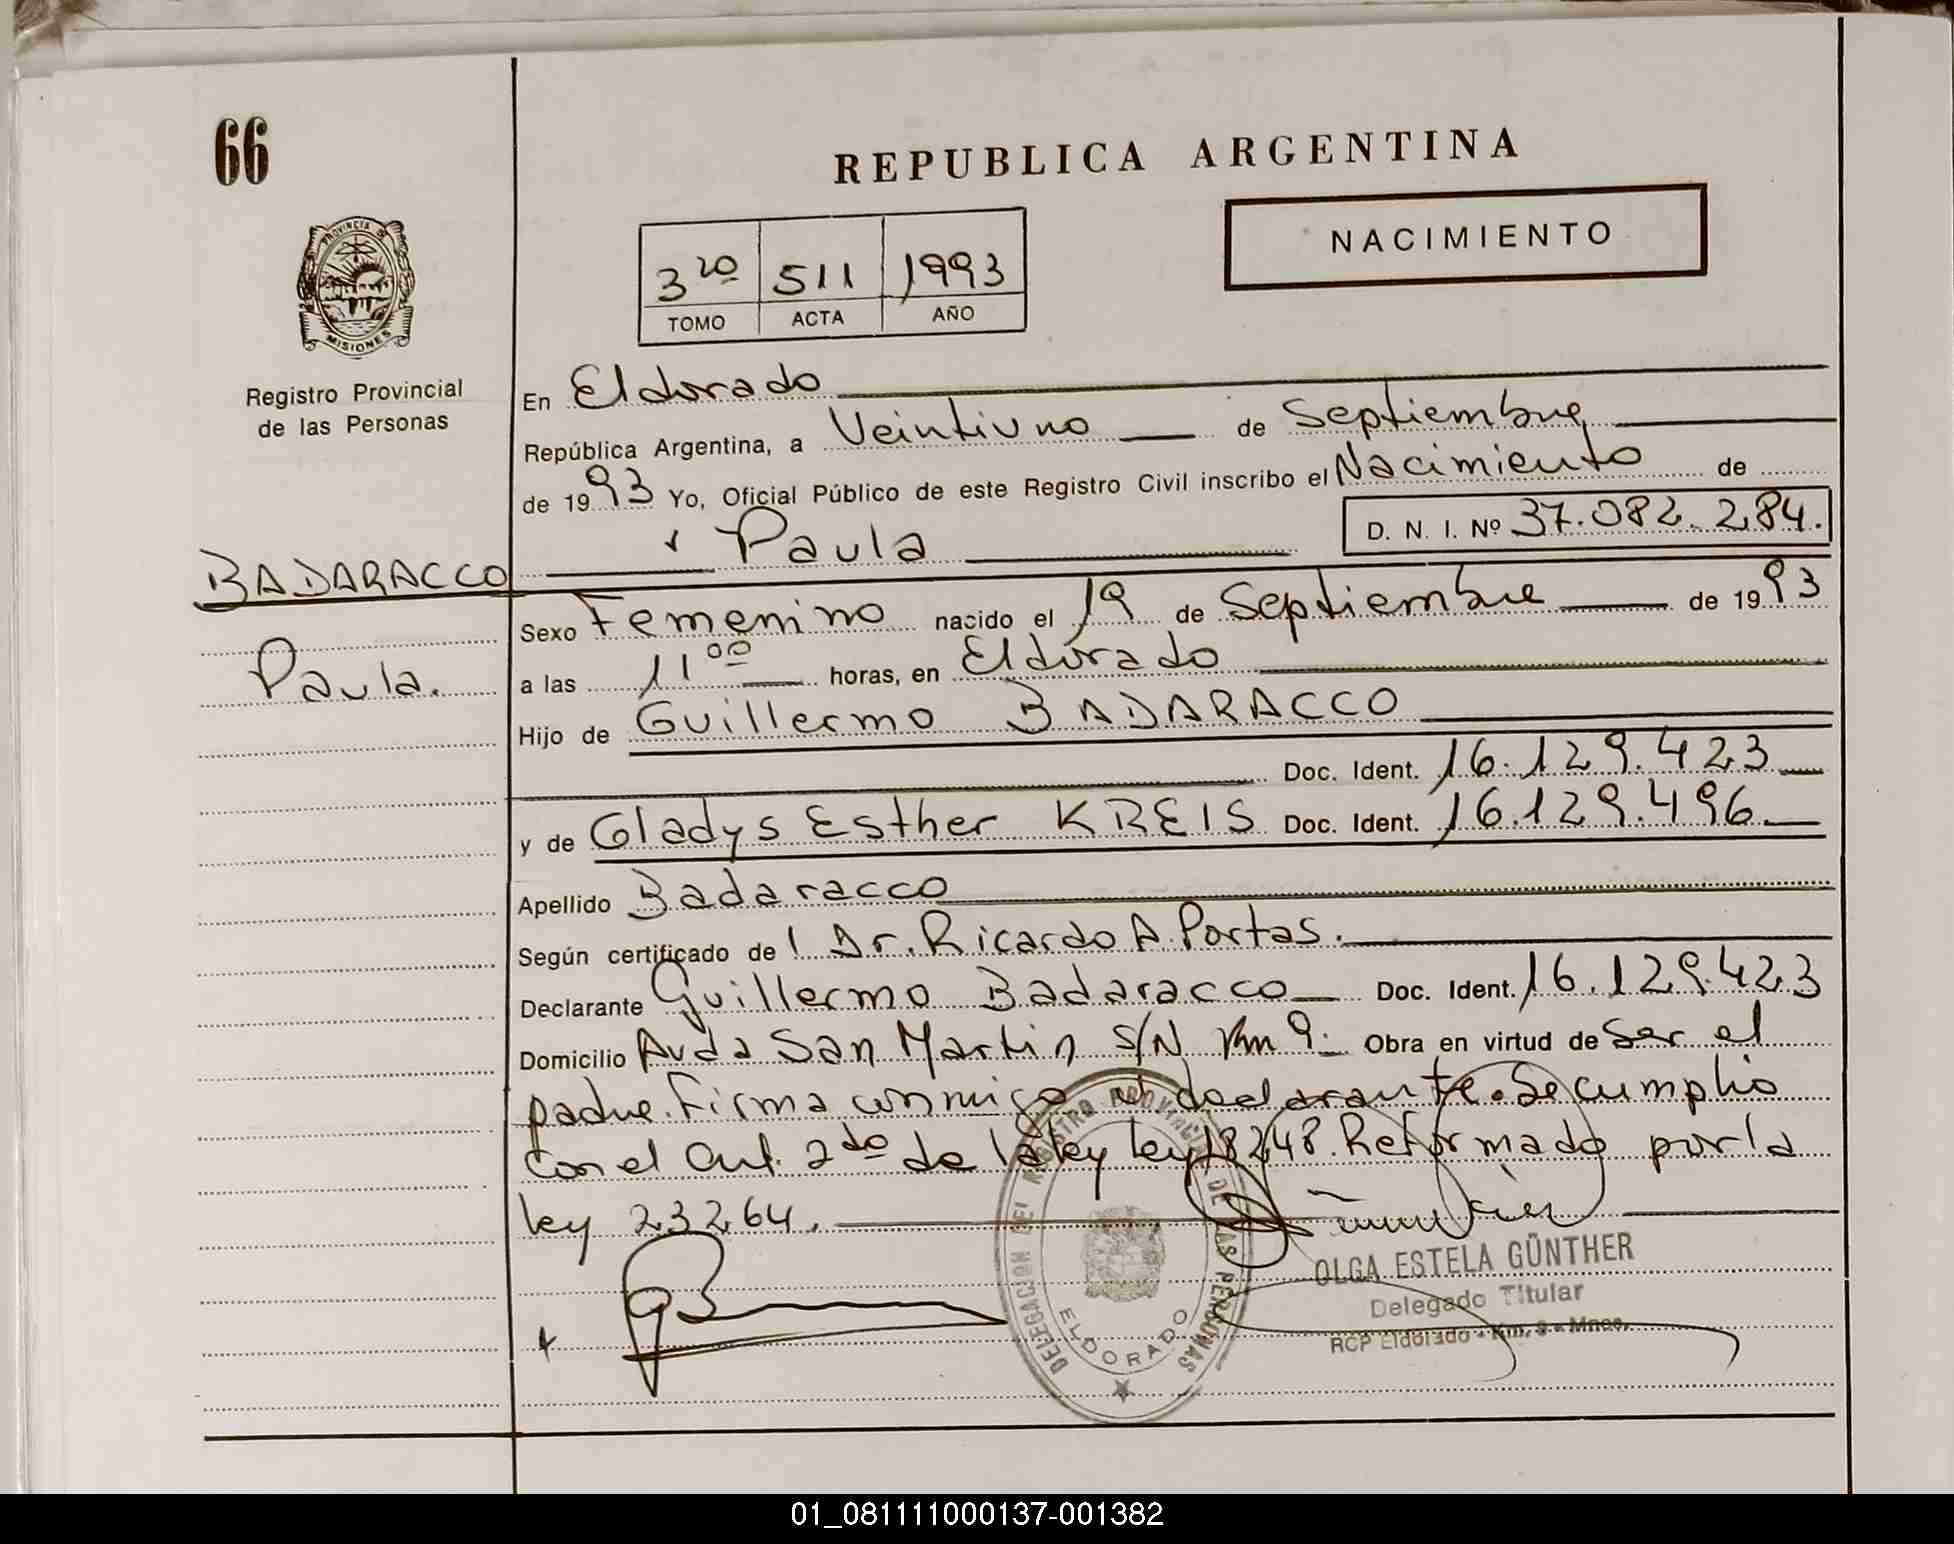 66
REPUBLICA ARGENTINA
NACIMIENTO
PROVINCIA D
MISIONES
3ro 511 1993
TOMO ACTA AÑO
Registro Provincial
de las Personas
En Eldorado
República Argentina, a Veintiuno de Septiembre
de 1993 Yo, Oficial Público de este Registro Civil inscribo el Nacimiento de
Paula D. N. I. Nº 37.082.284.
BADARACCO
Paula.
Sexo Femenino nacido el 19 de Septiembre de 1993
a las 11 00 horas, en Eldorado
Hijo de Guillermo BADARACCO
Doc. Ident. 16.129.423
y de Gladys Esther KREIS Doc. Ident. 16.129.496
Apellido Badaracco
Según certificado de l Dr. Ricardo A. Portas.
Declarante Guillermo Badaracco Doc. Ident. 16.129.423
Domicilio Avda San Martin S/N Km 9. Obra en virtud de Ser el
padre. Firma conmigo el declarante. Se cumplio
con el Art. 2do de la ley ley 18248. Reformado por la
ley 23264.
DELEGACION DEL REGISTRO PROVINCIAL DE LAS PERSONAS
ELDORADO
OLGA ESTELA GÜNTHER
Delegado Titular
RCP Eldorado - Km. 9 - Mnes.
01_081111000137-001382